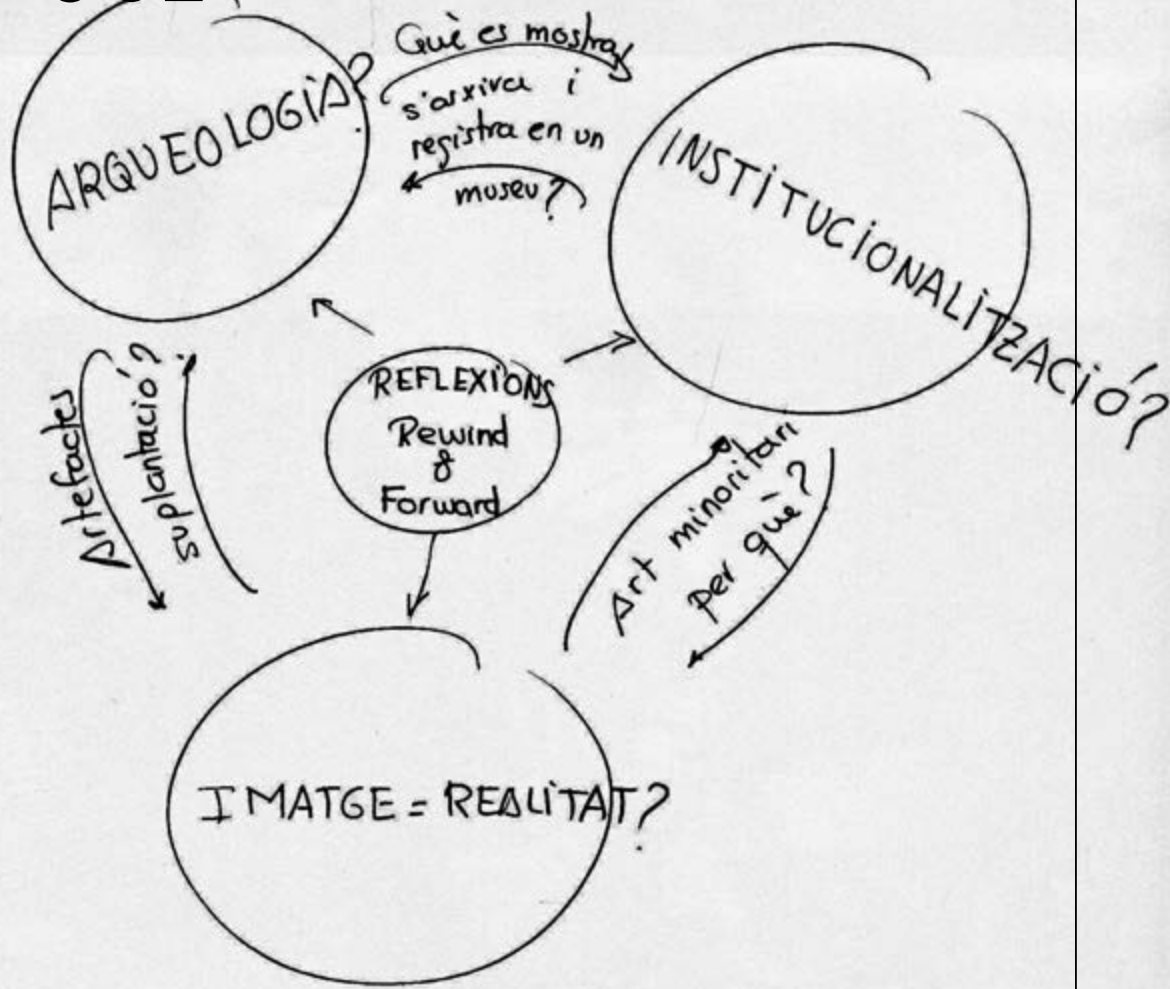 ARQUEOLOGIA?
Què es mostra,
s'arxiva i
registra en un
museu?
INSTiTUCiONALiTZACiÓ?
REFLEXiONS
Rewind
&
Forward
Artefactes
suplantació?
Art minoritari
per què?
IMATGE = REALiTAT?